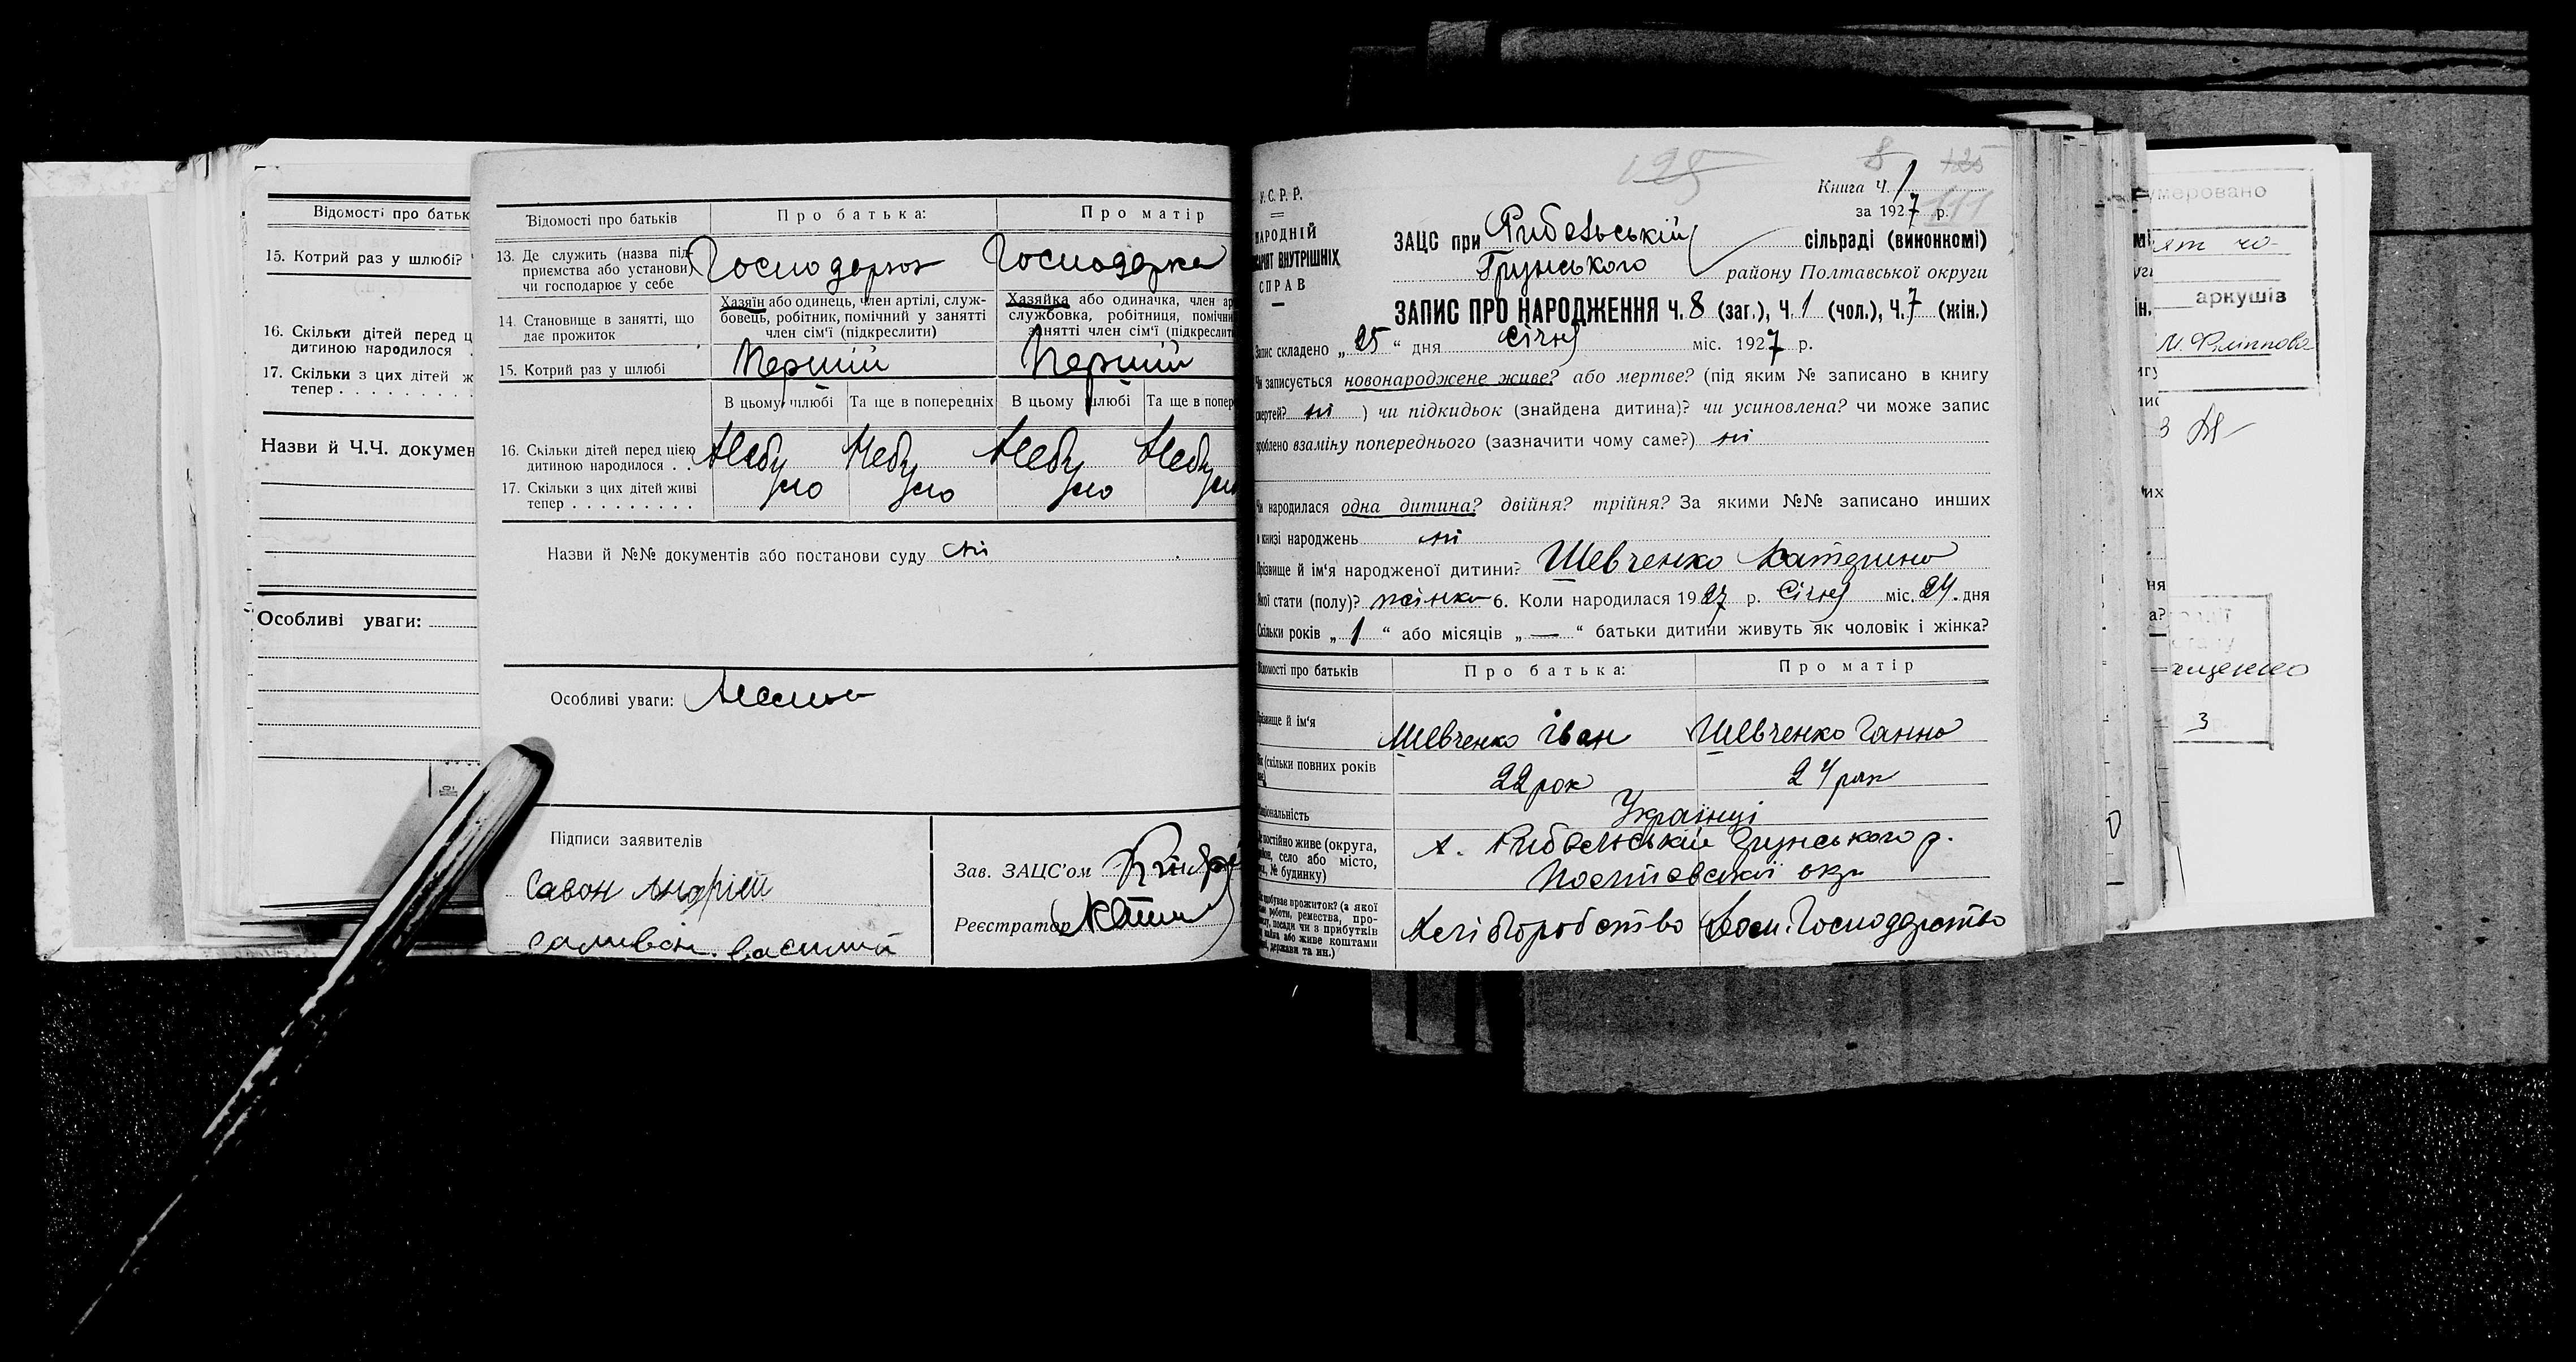 Відомості про батьк
15. Котрий раз у шлюбі?
16. Скільки дітей перед ц
дитиною народилося .
17. Скільки з цих дітей ж
тепер . . . . . . . . .
Назви й Ч.Ч. докумен
Особливі уваги:
Відомості про батьків
Про батька:
Про матір
13. Де служить (назва під-
приємства або установи)
чи господарює у себе
Господарює Господарка
14. Становище в занятті, що
дає прожиток
Хазяїн або одинець, член артілі, служ-
бовець, робітник, помічний у занятті
член сім'ї (підкреслити)
Хазяйка або одиначка, член ар
службовка, робітниця, помічни
занятті член сім'ї (підкреслит
15. Котрий раз у шлюбі
Перший Перший
В цьому шлюбі Та ще в попередніх В цьому шлюбі Та ще в попер
16. Скільки дітей перед цією
дитиною народилося . .
Небу Небу Небу Небу
17. Скільки з цих дітей живі
тепер . . . . . . . . .
ло ло ло
Назви й №№ документів або постанови суду ні
Особливі уваги: Немa
Підписи заявителів
Савон Андрій
Саливон Василий
Зав. ЗАЦС'ом
Реєстратор
У.С.Р.Р.
НАРОДНІЙ
ВНУТРІШНІХ
СПРАВ
125 8 125
Книга Ч. 1
за 1927 р.
ЗАЦС при Рибальській сільраді (виконкомі)
Грунського району Полтавської округи
ЗАПИС ПРО НАРОДЖЕННЯ Ч. 8 (заг.), Ч. 1 (чол.), Ч. 7 (жін.)
Запис складено „25“ дня Січня міс. 1927 р.
Чи записується новонароджене живе? або мертве? (під яким № записано в книгу
смертей? ні ) чи підкидьок (знайдена дитина)? чи усиновлена? чи може запис
зроблено взаміну попереднього (зазначити чому саме?) ні
Чи народилася одна дитина? двійня? трійня? За якими №№ записано инших
в книзі народжень ні
Прізвище й ім'я народженої дитини? Шевченко Катерина
Якої стати (полу)? жінка 6. Коли народилася 1927 р. Січня міс. 24 дня
Скільки років „1“ або місяців „—“ батьки дитини живуть як чоловік і жінка?
Відомості про батьків
Про батька:
Про матір
Прізвище й ім'я
Шевченко Іван Шевченко Ганна
(скільки повних років
22 рок 24 рок
Національність
Українці
постійно живе (округа,
село або місто,
№ будинку)
х. Рибальській Грунського р.
Полтавської окр.
добуває прожиток? (з якої
роботи, ремества, про-
посади чи з прибутків
або живе коштами
держави та ин.)
Хліборобство Дом. Господарство
умеровано
аркушів
М. Филиппова
3